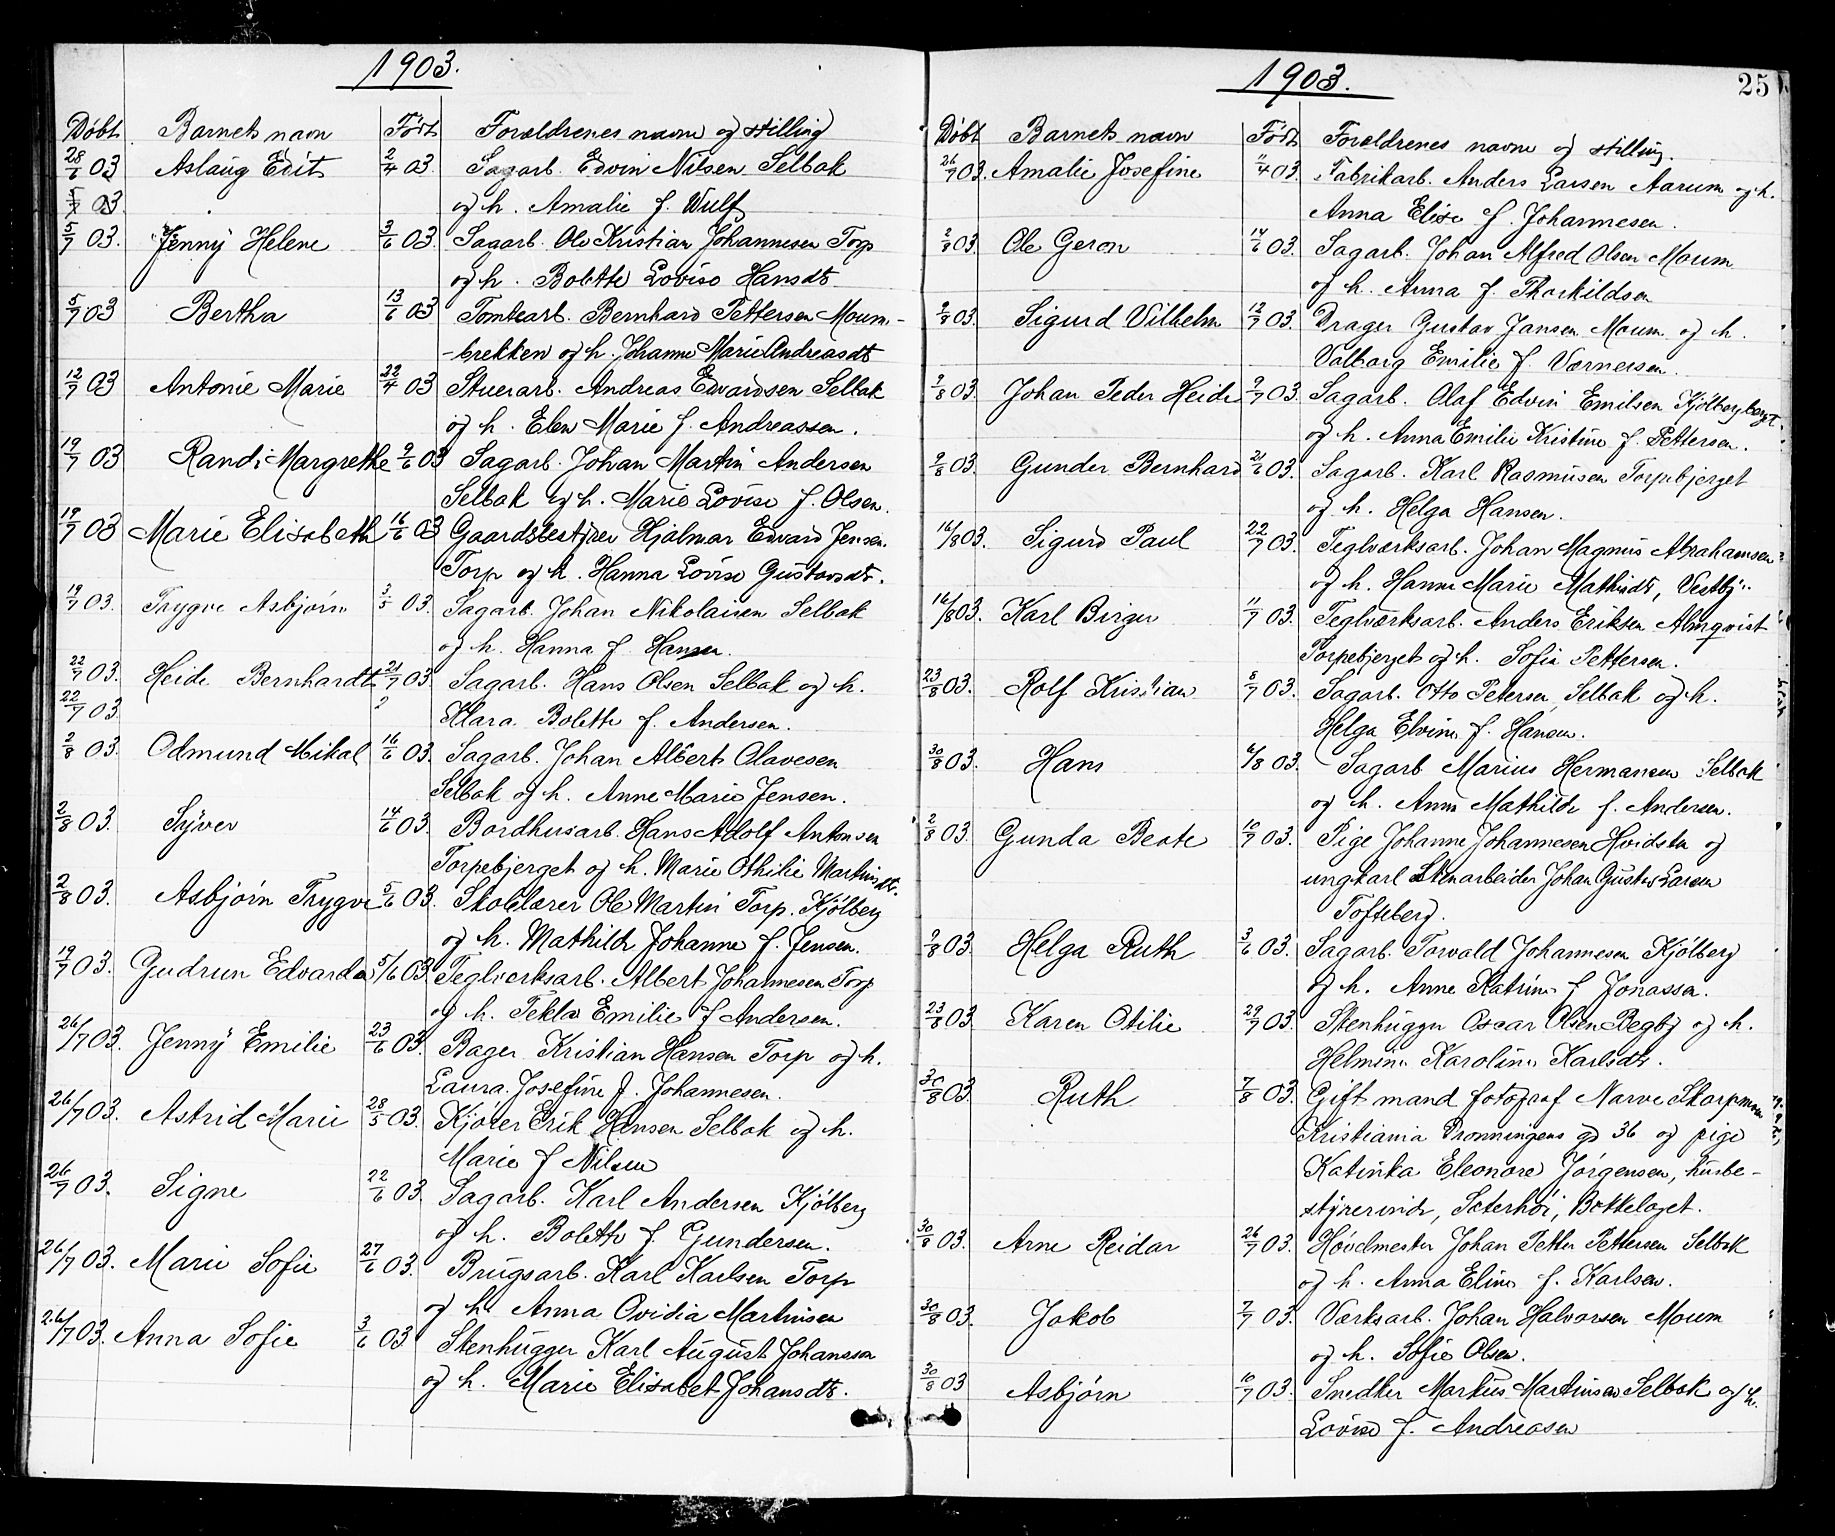 1903.
Døbt Barnets navn Født Forældrenes navne og stilling
28/6 03 Aslaug Edit 2/4 03 Sagarb. Edvin Nilsen Selbak
5/7 03 og h. Amalie f. Wulf
5/7 03. Jenny Helene 3/6 03. Sagarb. Ole Kristian Johannesen Torp
og h. Bolette Lovise Hansdt
5/7 03 Bertha 13/6 03 Tomtearb. Bernhard Pettersen Moum-
-brekken og h. Johanne Marie Andreasdt
12/7 03 Antonie Marie 22/4 03 Stuerarb. Andreas Edvardsen Selbak
og h. Elen Marie f. Andreassen.
19/7 03 Randi Margrethe 9/6 03 Sagarb. Johan Martin Andersen
Selbak og h. Marie Lovise f. Olsen.
19/7 03 Marie Elisabeth 16/6 03 Gaardsbestyrer Hjalmar Edvard Jensen.
Torp og h. Hanna Lovise Gustavsdt.
19/7 03. Trygve Asbjørn 3/5 03. Sagarb. Johan Nikolaisen Selbak
og h. Hanna f. Hansen.
22/7 03. Heide Bernhardt 21/7 03. Sagarb. Hans Olsen Selbak og h.
22/7 03 ? Klara Bolette f. Andersen.
2/8 03. Odmund Mikal 16/6 03. Sagarb. Johan Albert Olavesen
Selbak og h. Anne Marie Jensen.
2/8 03. Syver 14/6 03. Bordhusarb. Hans Adolf Antonsen
Torpebjerget og h. Marie Othilie Martinsdt.
2/8 03. Asbjørn Trygve 5/6 03. Skolelærer Ole Martin Torp. Kjølberg
og h. Mathilde Johanne f. Jensen.
19/7 03. Gudrun Edvarda 5/6 03. Teglverksarb. Albert Johannesen Torp
og h. Tekla Emilie f. Andersen.
26/7 03. Jenny Emilie 23/6 03. Bager Kristian Hansen Torp og h.
Laura Josefine f. Johannesen.
26/7 03. Astrid Marie 28/5 03. Kjører Erik Hansen Selbak og h.
Marie f Nilsen
26/7 03. Signe 22/6 03. Sagarb. Karl Andersen Kjølberg
og h. Bolette f. Gundersen.
26/7 03. Marie Sofie 27/6 03. Brugsarb. Karl Karlsen Torp
og h. Anna Ovidia Martinsen
26/7 03. Anna Sofie 3/6 03. Stenhugger Karl August Johansson
og h. Marie Elisabet Johansdt.
1903. 25
Døbt Barnets navn Født Forældrenes navne og stilling.
26/7 03. Amalie Josefine 11/4 03. Fabrikarb. Anders Larsen Aarum og h.
Anna Elise f. Johannesen.
2/8 03. Ole Geron 14/6 03. Sagarb. Johan Alfred Olsen Moum
og h. Anna f. Thorkildsen
9/8 03. Sigurd Vilhelm 12/7 03. Drager Gustav Jansen Moum og h.
Valborg Emilie f. Værnersen.
9/8 03. Johan Peder Heide 9/7 03. Sagarb. Olaf Edvin Emilsen Kjølbergberget
og h. Anna Emilie Kristine f. Pettersen.
9/8 03. Gunder Bernhard 21/6 03. Sagarb. Karl Rasmusen Torpebjerget
og h. Helga Hansen.
16/8 03. Sigurd Paul 22/7 03. Teglværksarb. Johan Magnus Abrahamsen
og h. Hanna Marie Mathisdt, Vestby..
16/8 03. Karl Birger 11/7 03. Teglværksarb. Anders Eriksen Almqvist
Torpebjerget og h. Sofie Pettersen.
23/8 03. Rolf Kristian 8/7 03. Sagarb. Otto Petersen Selbak og h.
Helga Elvine f. Hansen.
30/8 03. Hans 6/8 03. Sagarb Marius Hermansen Selbak
og h. Anna Mathilde f. Andersen.
2/8 03. Gunda Beate 10/7 03. Pige Johanne Johannesen Hvidsten og
ungkarl Stenarbeider Johan Gustav Larsen
Tofteberg.
9/8 03. Helga Ruth 3/6 03. Sagarb. Torvald Johannesen Kjølberg
og h. Anne Katrine f Jonassen.
23/8 03. Karen Otilie 29/7 03. Stenhugger Oscar Olsen Begby og h.
Helmine Karoline Karlsdt.
30/8 03. Ruth 7/8 03. Gift mand fotograf Narve Skarpmoen
Kristiania Dronningens gd 36 og pige
Katinka Eleonore Jørgensen, husbe-
styrerinde, Sæterhøi, Bottelaget.
30/8 03. Arne Reidar 26/7 03. Høvelmester Johan Petter Pettersen Selbak
og h. Anna Eline f. Karlsen.
30/8 03. Jakob 7/7 03. Værksarb. Johan Halvorsen Moum
og h. Sofie Olsen.
30/8 03 Asbjørn 10/7 03. Snedker Markus Martinsen Selbak og h.
Lovise f. Andreasen